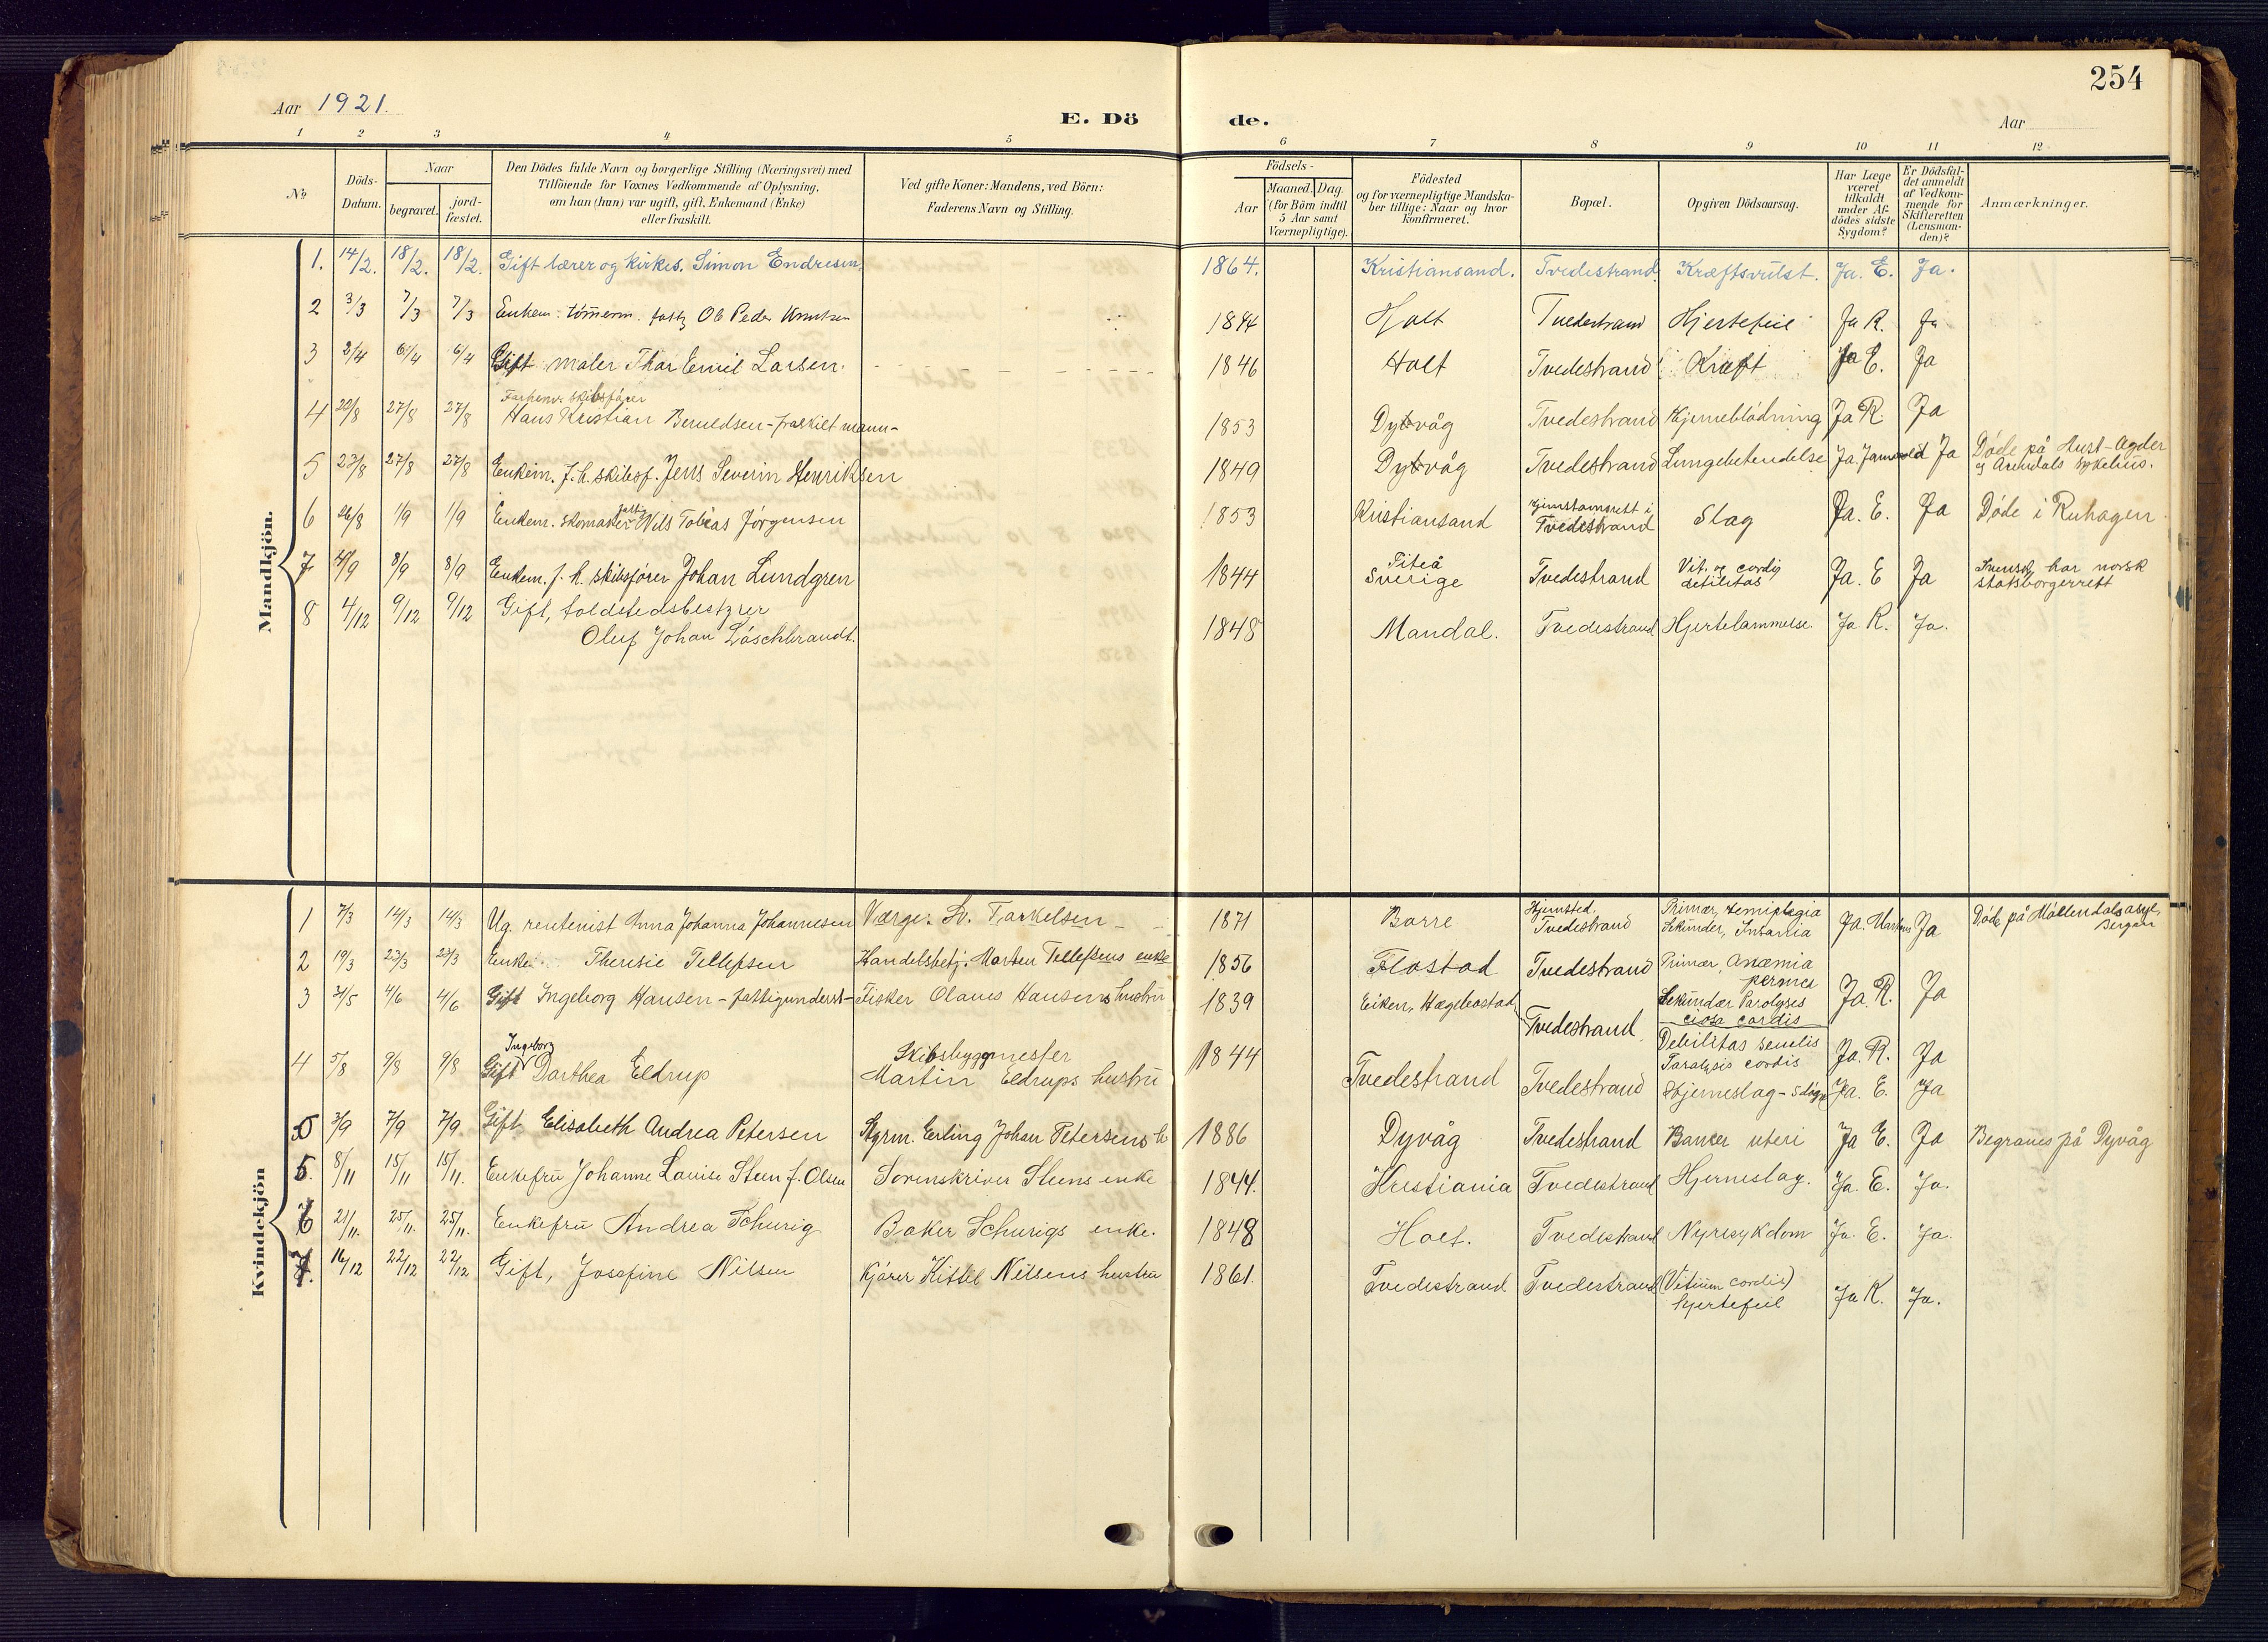 254
Aar 1921.
E. Dö de.
Aar
1 2 3 4 5 6 7 8 9 10 11 12
No
Döds-Datum.
Naar
begravet.
jord-fæstet.
Den Dödes fulde Navn og borgerlige Stilling (Næringsvei) med
Tilföiende for Voxnes Vedkommende af Oplysning,
om han (hun) var ugift, gift, Enkemand (Enke)
eller fraskilt.
Ved gifte Koner: Mandens, ved Börn:
Faderens Navn og Stilling.
Födsels-
Aar
Maaned. Dag.
(for Börn indtil
5 Aar samt
Værnepligtige).
Födested
og for værnepligtige Mandska-
ber tillige: Naar og hvor
konfirmeret.
Bopæl.
Opgiven Dödsaarsag.
Har Læge
været
tilkaldt
under Af-
dödes sidste
Sygdom?
Er Dödsfal-
det anmeldt
af Vedkom-
mende for
Skifteretten
(Lensman-
den)?
Anmærkninger.
Mandkjön.
1. 14/2. 18/2. 18/2. Gift lærer og kirkes. Simon Endresen, 1864. Kristiansand. Tvedestrand. Kræftsvulst. Ja. E. Ja.
2 3/3 7/3 7/3 Enkem. tömerm. Ole Peder Knutsen 1844 Holt Tvedestrand Hjertefeil Ja R. Ja
3 2/4 6/4 6/4 Gift maler Thor Emil Larsen. 1846 Holt Tvedestrand Kræft Ja E. Ja
Forhenv. skibsförer
4 20/8 27/8 27/8 Hans Kristian Berneldsen - fraskilt mann - 1853 Dybvåg Tvedestrand Hjerneblödning Ja R. Ja
5 23/8 27/8 27/8 Enkem. f. h. skibsf. Jens Severin Henriksen 1849 Dybvåg Tvedestrand Lungebetendelse Ja Ja Döde på Aust-Agder
og Arendals sykehus.
6 26/8 1/9 1/9 Enkem. skomaker Nils Tobias Jörgensen 1853 Kristiansand Hjemstamsrett i
Tvedestrand Slag Ja. E. Ja Döde i Ruhagen
7 4/9 8/9 8/9 Enkem. f. h. skibsförer Johan Lundgren 1844 Piteå
Sverige Tvedestrand Vit. og cordis
debilitas Ja. E Ja Svensk, har norsk
statsborgerrett
8 4/12 9/12 9/12 Gift, toldstedsbestyrer
Oluf Johan Löschbrandt. 1848 Mandal. Tvedestrand Hjertelammelse. Ja R. Ja.
Kvindekjön
1 7/3 14/3 14/3 Ug. rentenist Anna Johanna Johannesen Værge: Sv. Tarkelsen 1871 Borre Hjemsted.
Tvedestrand Primær, Hemiplegia
Sekundær, Insania Ja. Ja Döde på Möllendals asyl,
Bergen
2 19/3 23/3 23/3 Enke Theresie Tellefsen Handelsbetj. Morten Tellefsens enke 1856 Flostad Tvedestrand Primær, Anæmia
pernici
Sekundær Paralyses
cordis Ja. R. Ja
3 31/5 4/6 4/6 Gift Ingeborg Hansen - fattigunderst - Fisker Olaus Hansens hustru 1839 Eiken, Hægebostad Tvedestrand. Debilitas senilis
Paralysis cordis Ja. R. Ja
4 5/8 9/8 9/8 Gift Ingeborg Dorthea Eldrup Skibsbyggmester
Martin Eldrups hustru 1844 Tvedestrand Tvedestrand Hjerneslag - Ja. E. Ja
5 3/9 7/9 7/9 Gift Elisabeth Andrea Petersen Styrm. Erling Johan Petersens h 1886 Dyvåg Tvedestrand Cancer uteri Ja E. Ja Begraves på Dyvåg
5. 8/11 15/11 15/11. Enkefru Johanne Louise Steen f. Olsen Sorenskriver Steens enke 1844. Kristiania Tvedestrand Hjerneslag. Ja. E. Ja.
6 21/11. 25/11. 25/11. Enkefru Andrea Schurig Baker Schurigs enke. 1848 Holt. Tvedestrand Nyresykdom Ja. E. Ja.
7. 16/12 22/12 22/12 Gift, Josefine Nilsen Kjörer Kittel Nilsens hustru 1861. Tvedestrand Tvedestrand (Vitium cordis)
hjertefeil Ja K. Ja.